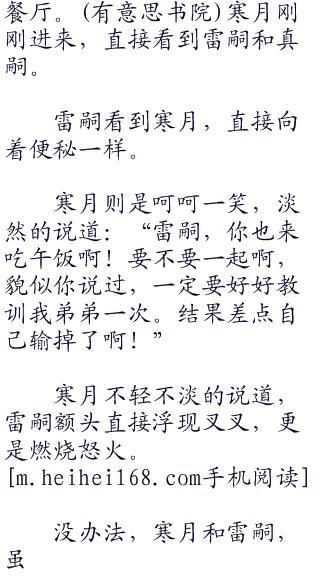 餐厅。(有意思书院)寒月刚
刚进来，直接看到雷嗣和真
嗣。
雷嗣看到寒月，直接向
着便秘一样。
寒月则是呵呵一笑，淡
然的说道：“雷嗣，你也来
吃午饭啊！要不要一起啊，
貌似你说过，一定要好好教
训我弟弟一次。结果差点自
己输掉了啊！”
寒月不轻不淡的说道，
雷嗣额头直接浮现叉叉，更
是燃烧怒火。
[m.heihei168.com手机阅读]
没办法，寒月和雷嗣，
虽